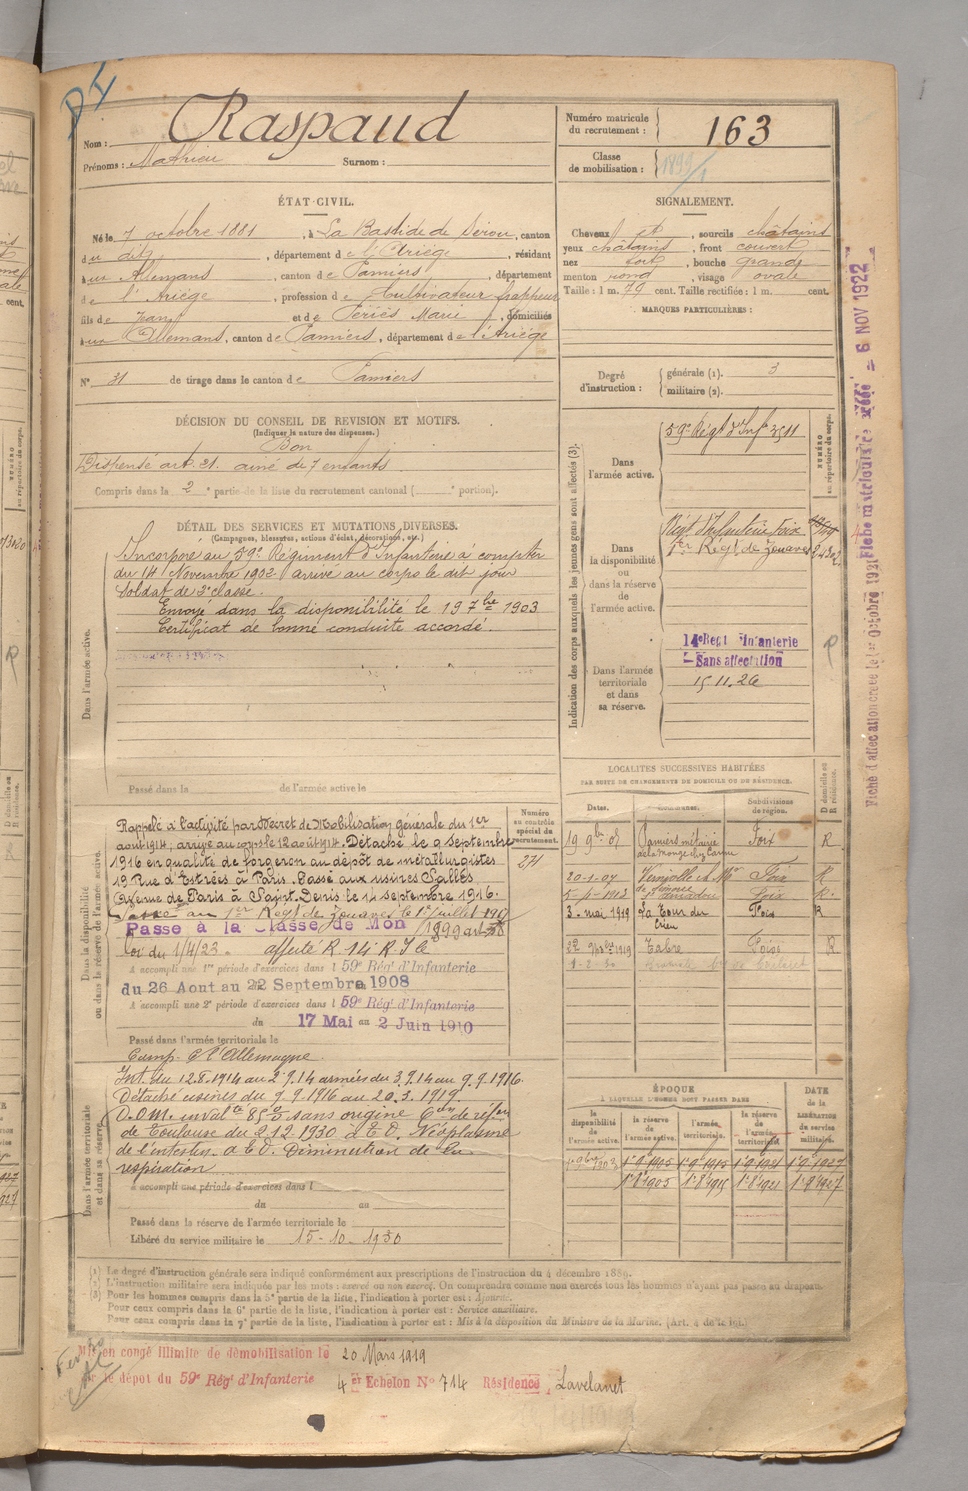 Nom : Raspaud
Prénoms : Mathieu Surnom :
Numéro matricule du recrutement : 163
Classe de mobilisation : 1899/1
ÉTAT CIVIL.
Né le 7 octobre 1881, à La Bastide de Sérou, canton
du dit, département de l'Ariège, résidant
aux Allemans, canton de Pamiers, département
de l'Ariège, profession de Cultivateur frappeur
fils de Jean et de Périès Marie, domiciliés
aux Allemans, canton de Pamiers, département de l'Ariège
N° 31 de tirage dans le canton de Pamiers
SIGNALEMENT.
Cheveux et, sourcils châtains
yeux châtains, front couvert
nez fort, bouche grande
menton rond, visage ovale
Taille : 1 m. 79 cent. Taille rectifiée : 1 m. cent.
MARQUES PARTICULIÈRES :
Degré d'instruction : générale (1). 3
militaire (2).
DÉCISION DU CONSEIL DE REVISION ET MOTIFS.
(Indiquer la nature des dispenses.)
Bon
Dispensé art. 21. aîné de 7 enfants
Compris dans la 2e partie de la liste du recrutement cantonal ( e portion).
DÉTAIL DES SERVICES ET MUTATIONS DIVERSES.
(Campagnes, blessures, actions d'éclat, décorations, etc.)
Dans l'armée active.
Incorporé au 59e Régiment d'Infanterie à compter
du 14 Novembre 1902. arrivé au corps le dit jour
Soldat de 2e classe.
Envoyé dans la disponibilité le 19 7bre 1903
Certificat de bonne conduite accordé.
Passé dans de l'armée active le
Indication des corps auxquels les jeunes gens sont affectés (3).
NUMÉRO au répertoire du corps.
Dans l'armée active.
59e Régt d'Infie 3511
Dans la disponibilité ou dans la réserve de l'armée active.
Régt d'Infanterie Foix
1er Régt de Zouaves
Dans l'armée territoriale et dans sa réserve.
14e Regt d'Infanterie
Sans affectation
15.11.26
R
Fiche matricule créée 6 NOV 1922
Fiche d'affectation créée le 1er Octobre 1921
Dans la disponibilité ou dans la réserve de l'armée active.
Numéro au contrôle spécial du recrutement.
24
Rappelé à l'activité par Décret de Mobilisation générale du 1er
août 1914, arrivé au corps le 12 août 1914. Détaché le 9 Septembre
1916 en qualité de forgeron au dépôt de métallurgistes
19 Rue d'Estrées à Paris. Passé aux usines Sallès
Avenue de Paris à Saint Denis le 14 septembre 1916.
Passé au 1er Régt de Zouaves le 1er juillet 1917
Passé à la Classe de Mon 1899 art 58
loi du 1/4/23. affecté R. 14e R.I
A accompli une 1re période d'exercices dans l 59e Rég' d'Infanterie
du 26 Aout au 22 Septembre 1908
A accompli une 2e période d'exercices dans l 59e Rég' d'Infanterie
du 17 Mai au 2 Juin 1910
Passé dans l'armée territoriale le
Camp. C. l'Allemagne.
Dans l'armée territoriale et dans sa réserve.
Int. du 12.8.1914 au 2.9.14 armées du 3.9.14 au 9.9.1916.
Détaché usines du 9.9.1916 au 20.3.1919.
de Toulouse du 2 12 1930
Diminution de la
respiration
A accompli une période d'exercices dans l
du au
Passé dans la réserve de l'armée territoriale le
Libéré du service militaire le 15-10-1930
LOCALITÉS SUCCESSIVES HABITÉES
PAR SUITE DE CHANGEMENTS DE DOMICILE OU DE RÉSIDENCE.
Dates. Communes. Subdivisions de région. D domicile ou R résidence.
19 9bre 05 Pamiers métairie Foix R
20-1-07 Foix R
5-9-1913 Foix R.
3. mai 1919 La Tour du Crieu Foix R
22 9bre 1919 Foix R
ÉPOQUE
À LAQUELLE L'HOMME DOIT PASSER DANS
la disponibilité de l'armée active. la réserve de l'armée active. l'armée territoriale. la réserve de l'armée territoriale. DATE de la LIBÉRATION du service militaire.
1er 9bre 1903 1er 9 1905 1er 9 1915 1er 9 1921 1er 9 1927
1er 8 1905 1er 8 1915 1er 8 1921 1er 8 1927
(1) Le degré d'instruction générale sera indiqué conformément aux prescriptions de l'instruction du 4 décembre 1889.
(2) L'instruction militaire sera indiquée par les mots : exercé ou non exercé. On comprendra comme non exercés tous les hommes n'ayant pas passé au drapeau.
(3) Pour les hommes compris dans la 5e partie de la liste, l'indication à porter est : Ajourné.
Pour ceux compris dans la 6e partie de la liste, l'indication à porter est : Service auxiliaire.
Pour ceux compris dans la 7e partie de la liste, l'indication à porter est : Mis à la disposition du Ministre de la Marine. (Art. 4 de la loi.)
Mis en congé illimité de démobilisation le 20 Mars 1919
par le dépôt du 59e Rég' d'Infanterie 4er Echelon N° 714 Résidence, Lavelanet